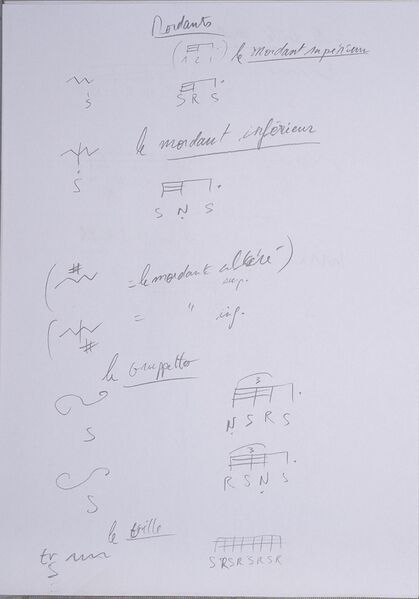 Mordants
( 1 2 1 ) le mordant supérieur
S S R S
le mordant inférieur
S
S N S
( # = le mordant altéré )
sup.
( # = " inf.
le Gruppetto
3
S N S R S
3
S R S N S
le trille
tr
S S R S R S R S R